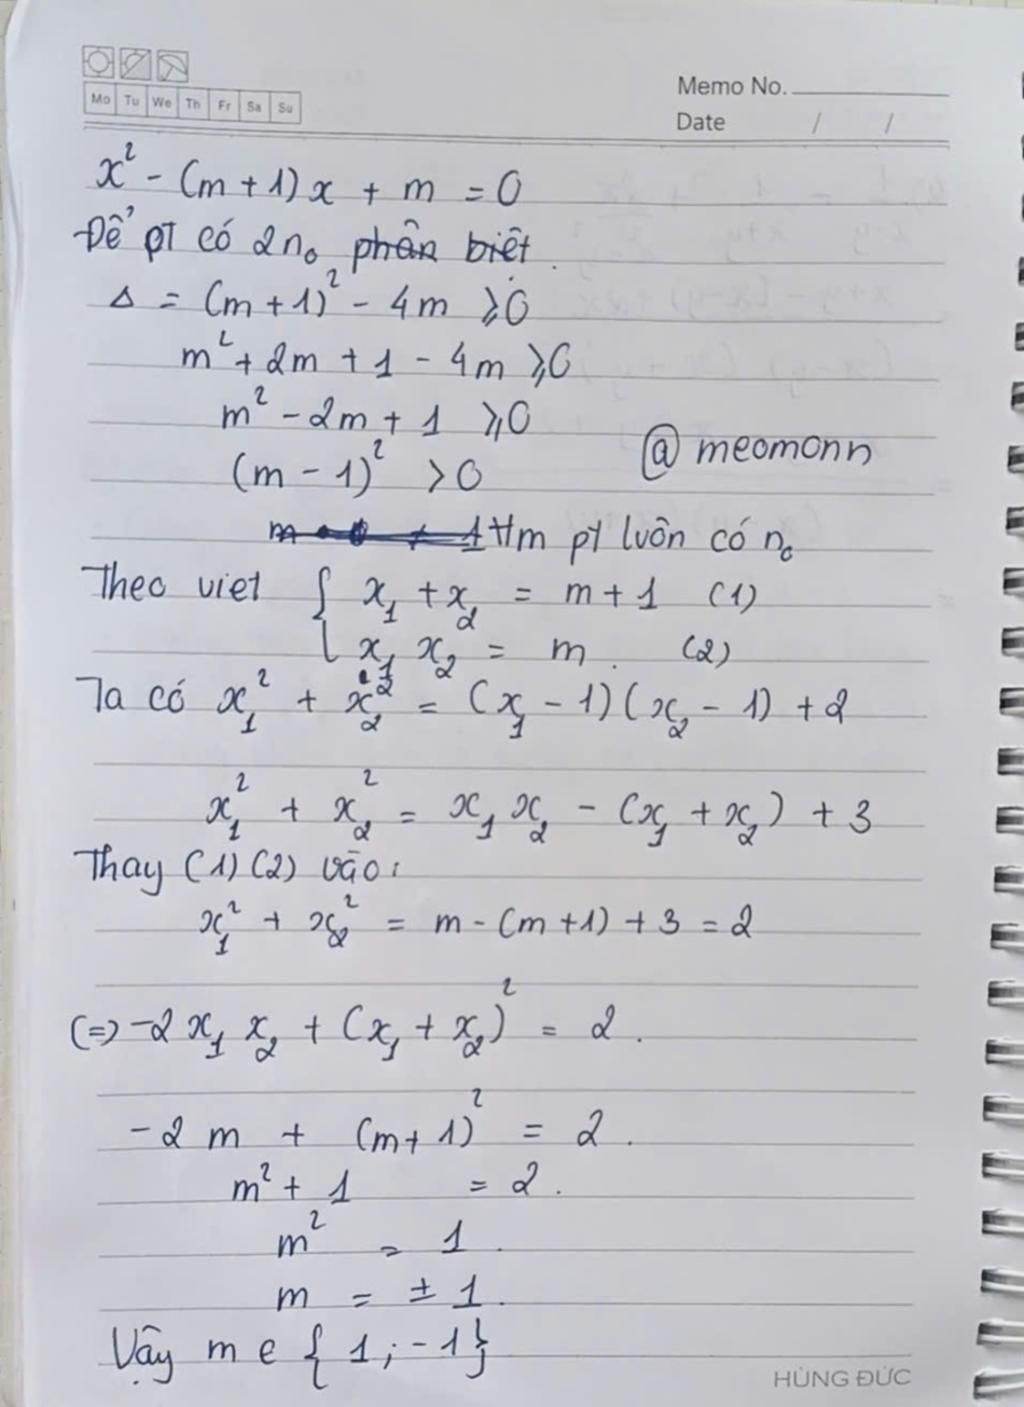 Mo Tu We Th Fr Sa Su
Memo No.
Date / /
x² - (m + 1) x + m = 0
Để pt có 2 n₀ phân biệt.
Δ = (m + 1)² - 4m ≥ 0
m² + 2m + 1 - 4m ≥ 0
m² - 2m + 1 ≥ 0
@ meomonn
(m - 1)² > 0
∀m pt luôn có n₀
Theo viet { x₁ + x₂ = m + 1 (1)
x₁ x₂ = m. (2)
Ta có x₁² + x₂² = (x₁ - 1)(x₂ - 1) + 2
x₁² + x₂² = x₁ x₂ - (x₁ + x₂) + 3
Thay (1) (2) vào:
x₁² + x₂² = m - (m + 1) + 3 = 2
(=) -2 x₁ x₂ + (x₁ + x₂)² = 2.
-2 m + (m + 1)² = 2.
m² + 1 = 2.
m² = 1.
m = ± 1.
Vậy m ∈ { 1 ; -1 }
HÙNG ĐỨC